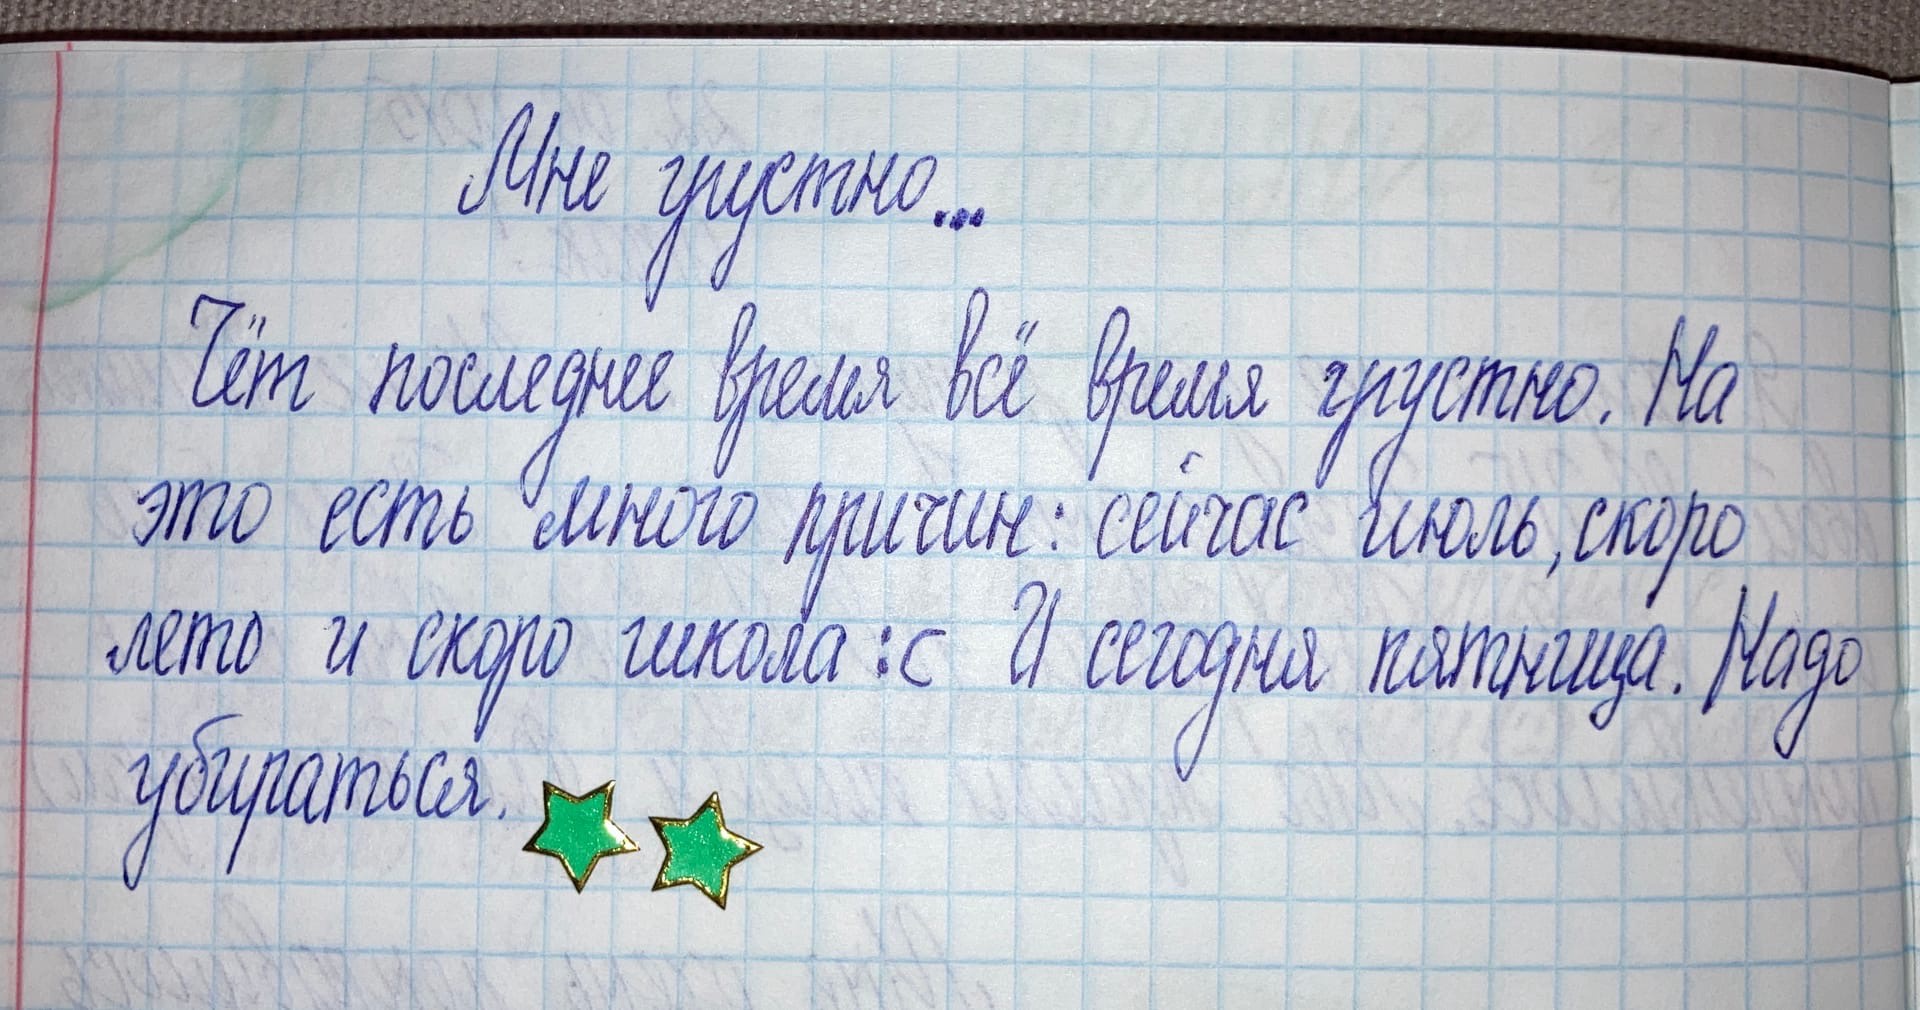 Мне грустно...
Чёт последнее время всё время грустно. На
это есть много причин: сейчас июль, скоро
лето и скоро школа :с И сегодня пятница. Надо
убираться.